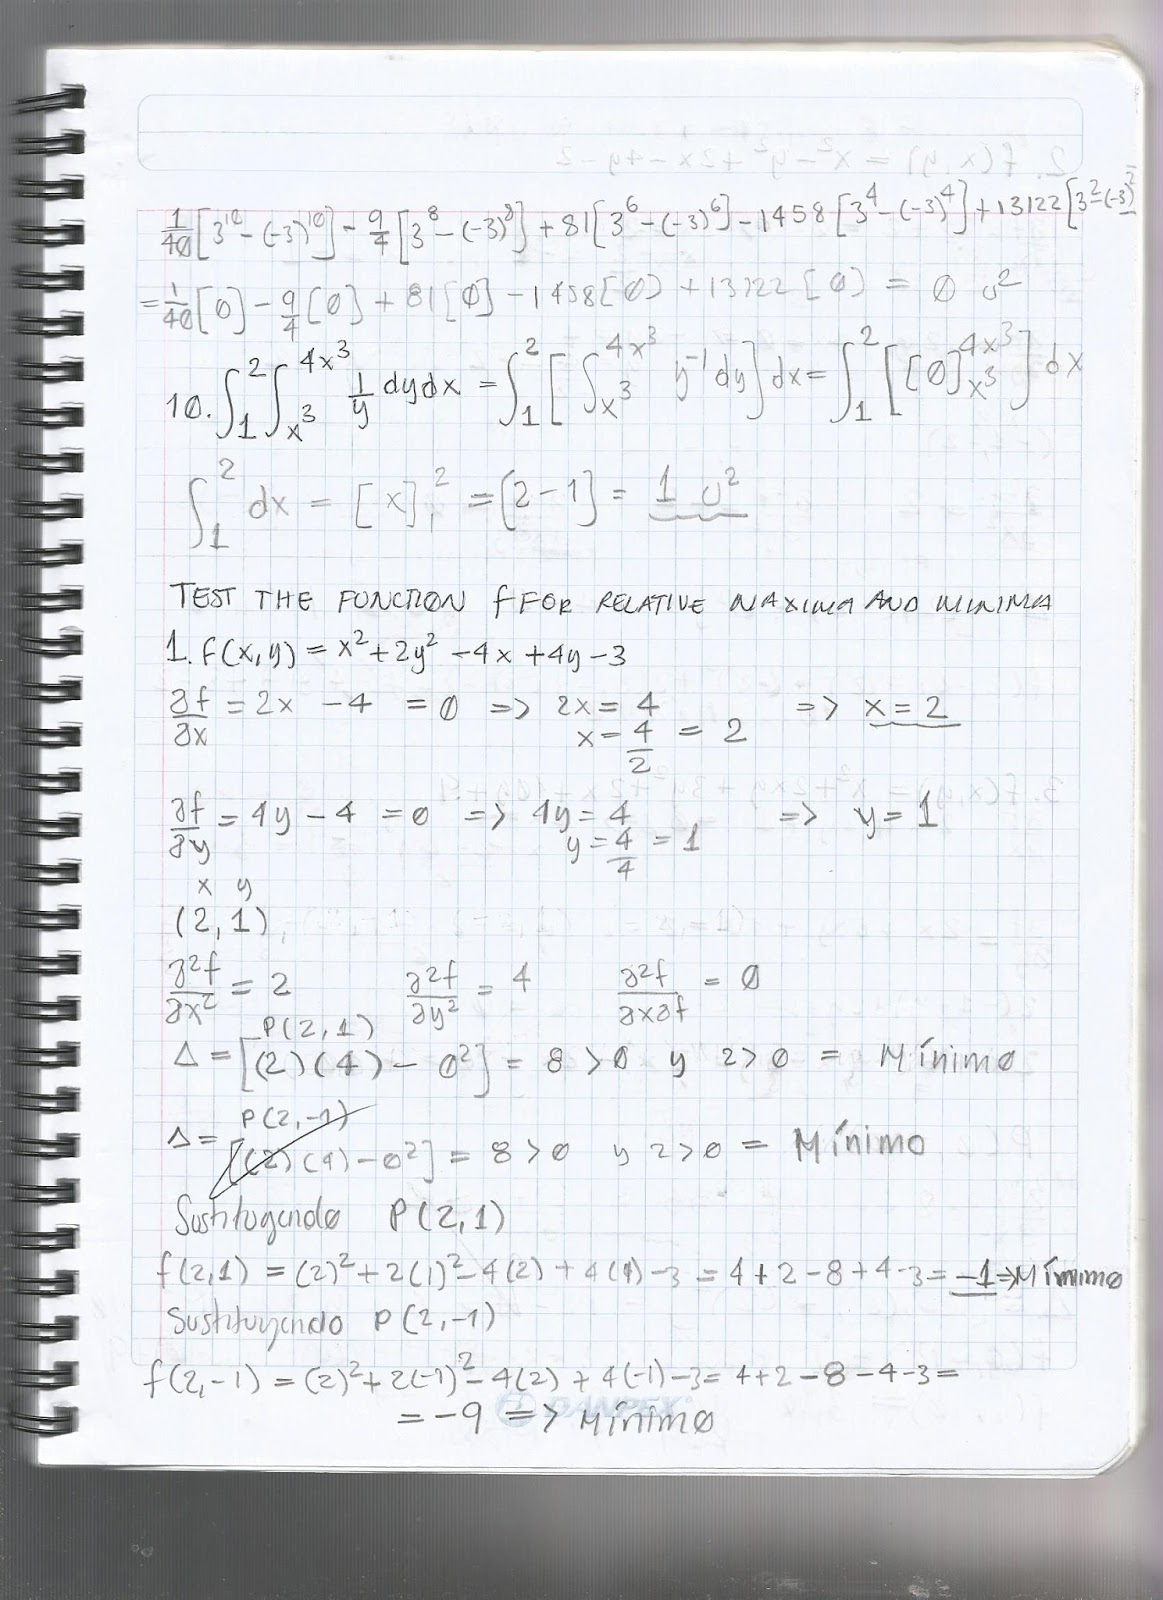 1/40[3^10-(-3)^10] - 9/4[3^8-(-3)^8] + 81[3^6-(-3)^6] - 1458[3^4-(-3)^4] + 13122[3^2-(-3)^2
= 1/40[0] - 9/4[0] + 81[0] - 1458[0] + 13122[0] = 0 u²
10. ∫₁² ∫_{x³}^{4x³} 1/y dydx = ∫₁² [∫_{x³}^{4x³} y⁻¹dy]dx = ∫₁² [[0]_{x³}^{4x³}] dx
∫₁² dx = [x]₁² = [2-1] = 1 u²
TEST THE FUNCTION f FOR RELATIVE MAXIMA AND MINIMA
1. f(x,y) = x²+2y²-4x+4y-3
∂f/∂x = 2x - 4 = 0 => 2x = 4 => x = 2
x = 4/2 = 2
∂f/∂y = 4y - 4 = 0 => 4y = 4 => y = 1
y = 4/4 = 1
x y
(2,1)
∂²f/∂x² = 2 ∂²f/∂y² = 4 ∂²f/∂x∂f = 0
P(2,1)
Δ = [(2)(4) - 0²] = 8 > 0 y 2 > 0 = Mínimo
P(2,-1)
Δ = [(2)(4) - 0²] = 8 > 0 y 2 > 0 = Mínimo
Sustituyendo P(2,1)
f(2,1) = (2)²+2(1)²-4(2)+4(1)-3 = 4+2-8+4-3 = -1 => Mínimo
Sustituyendo P(2,-1)
f(2,-1) = (2)²+2(-1)²-4(2)+4(-1)-3 = 4+2-8-4-3 =
= -9 => Mínimo
DANPEX